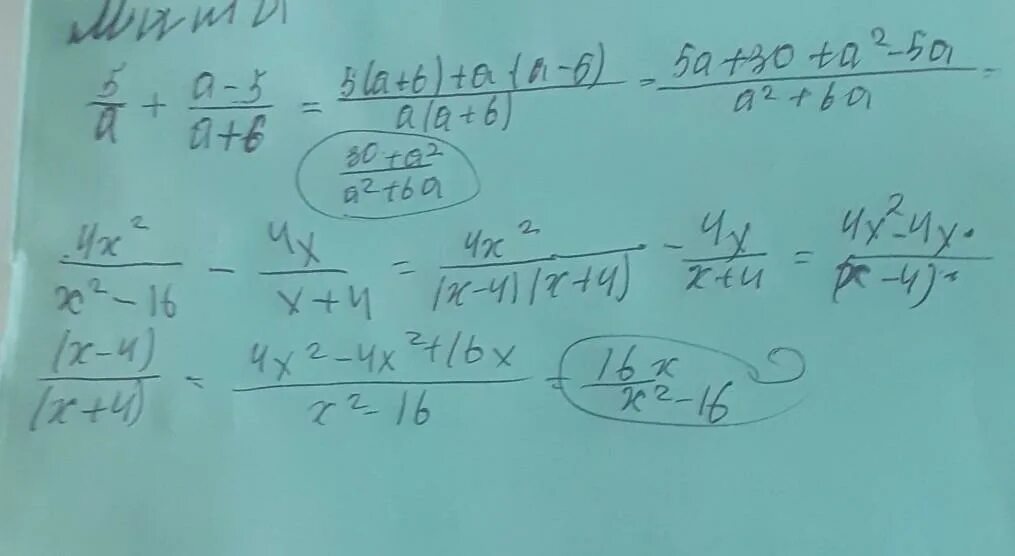 5/a + (a-5)/(a+6) = (5(a+6)+a·(a-5))/(a(a+6)) = (5a+30+a²-5a)/(a²+6a) =
(30+a²)/(a²+6a)
4x²/(x²-16) - 4x/(x+4) = 4x²/((x-4)(x+4)) - 4x/(x+4) = (4x²-4x·)/((x-4)·)
(x-4)/(x+4) = (4x²-4x²+16x)/(x²-16) = 16x/(x²-16)